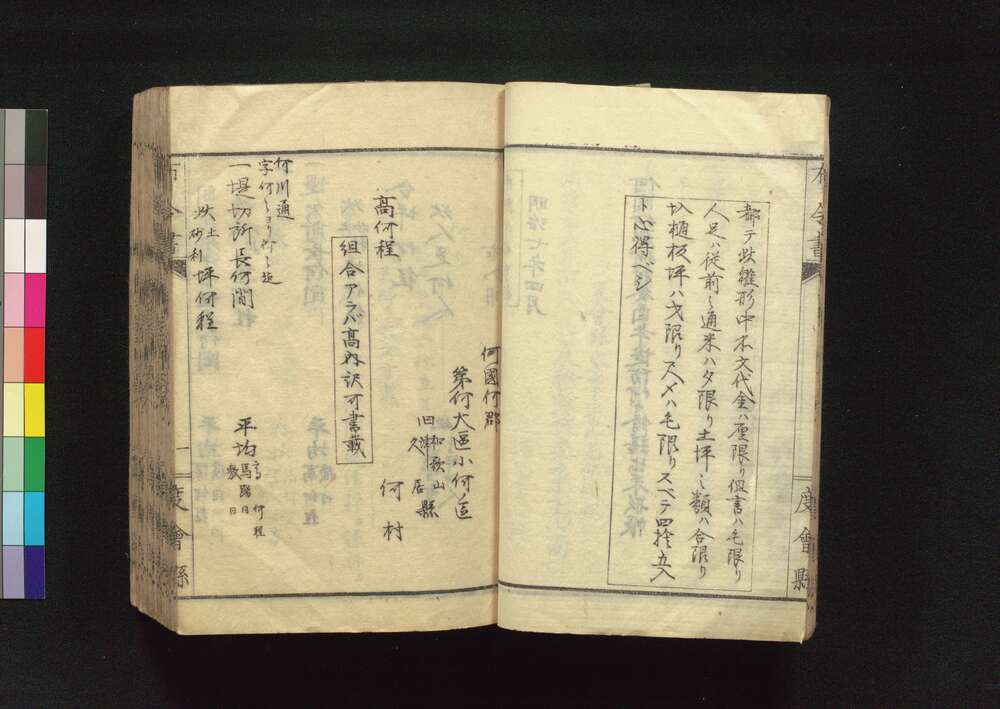 都テ此雛形中不文代金ハ厘限リ但書ハ毛限リ
人足ハ従前之通米ハタ限リ土坪之類ハ合限リ
圦樋板坪ハ才限リ尺〆ハ毛限リスベテ四捨五入
ト心得ベシ
布令書
度會縣
何國何郡
第何大區小何ノ區
旧
和歌山
津
久居
縣
何村
高何程
組合アラバ高内訳可書載
何川通
字何々ヨリ何々迄
一堤切所長何間
平均
高
馬踏
敷
何程
此
土
砂利
坪何程
布令書
一
度會縣